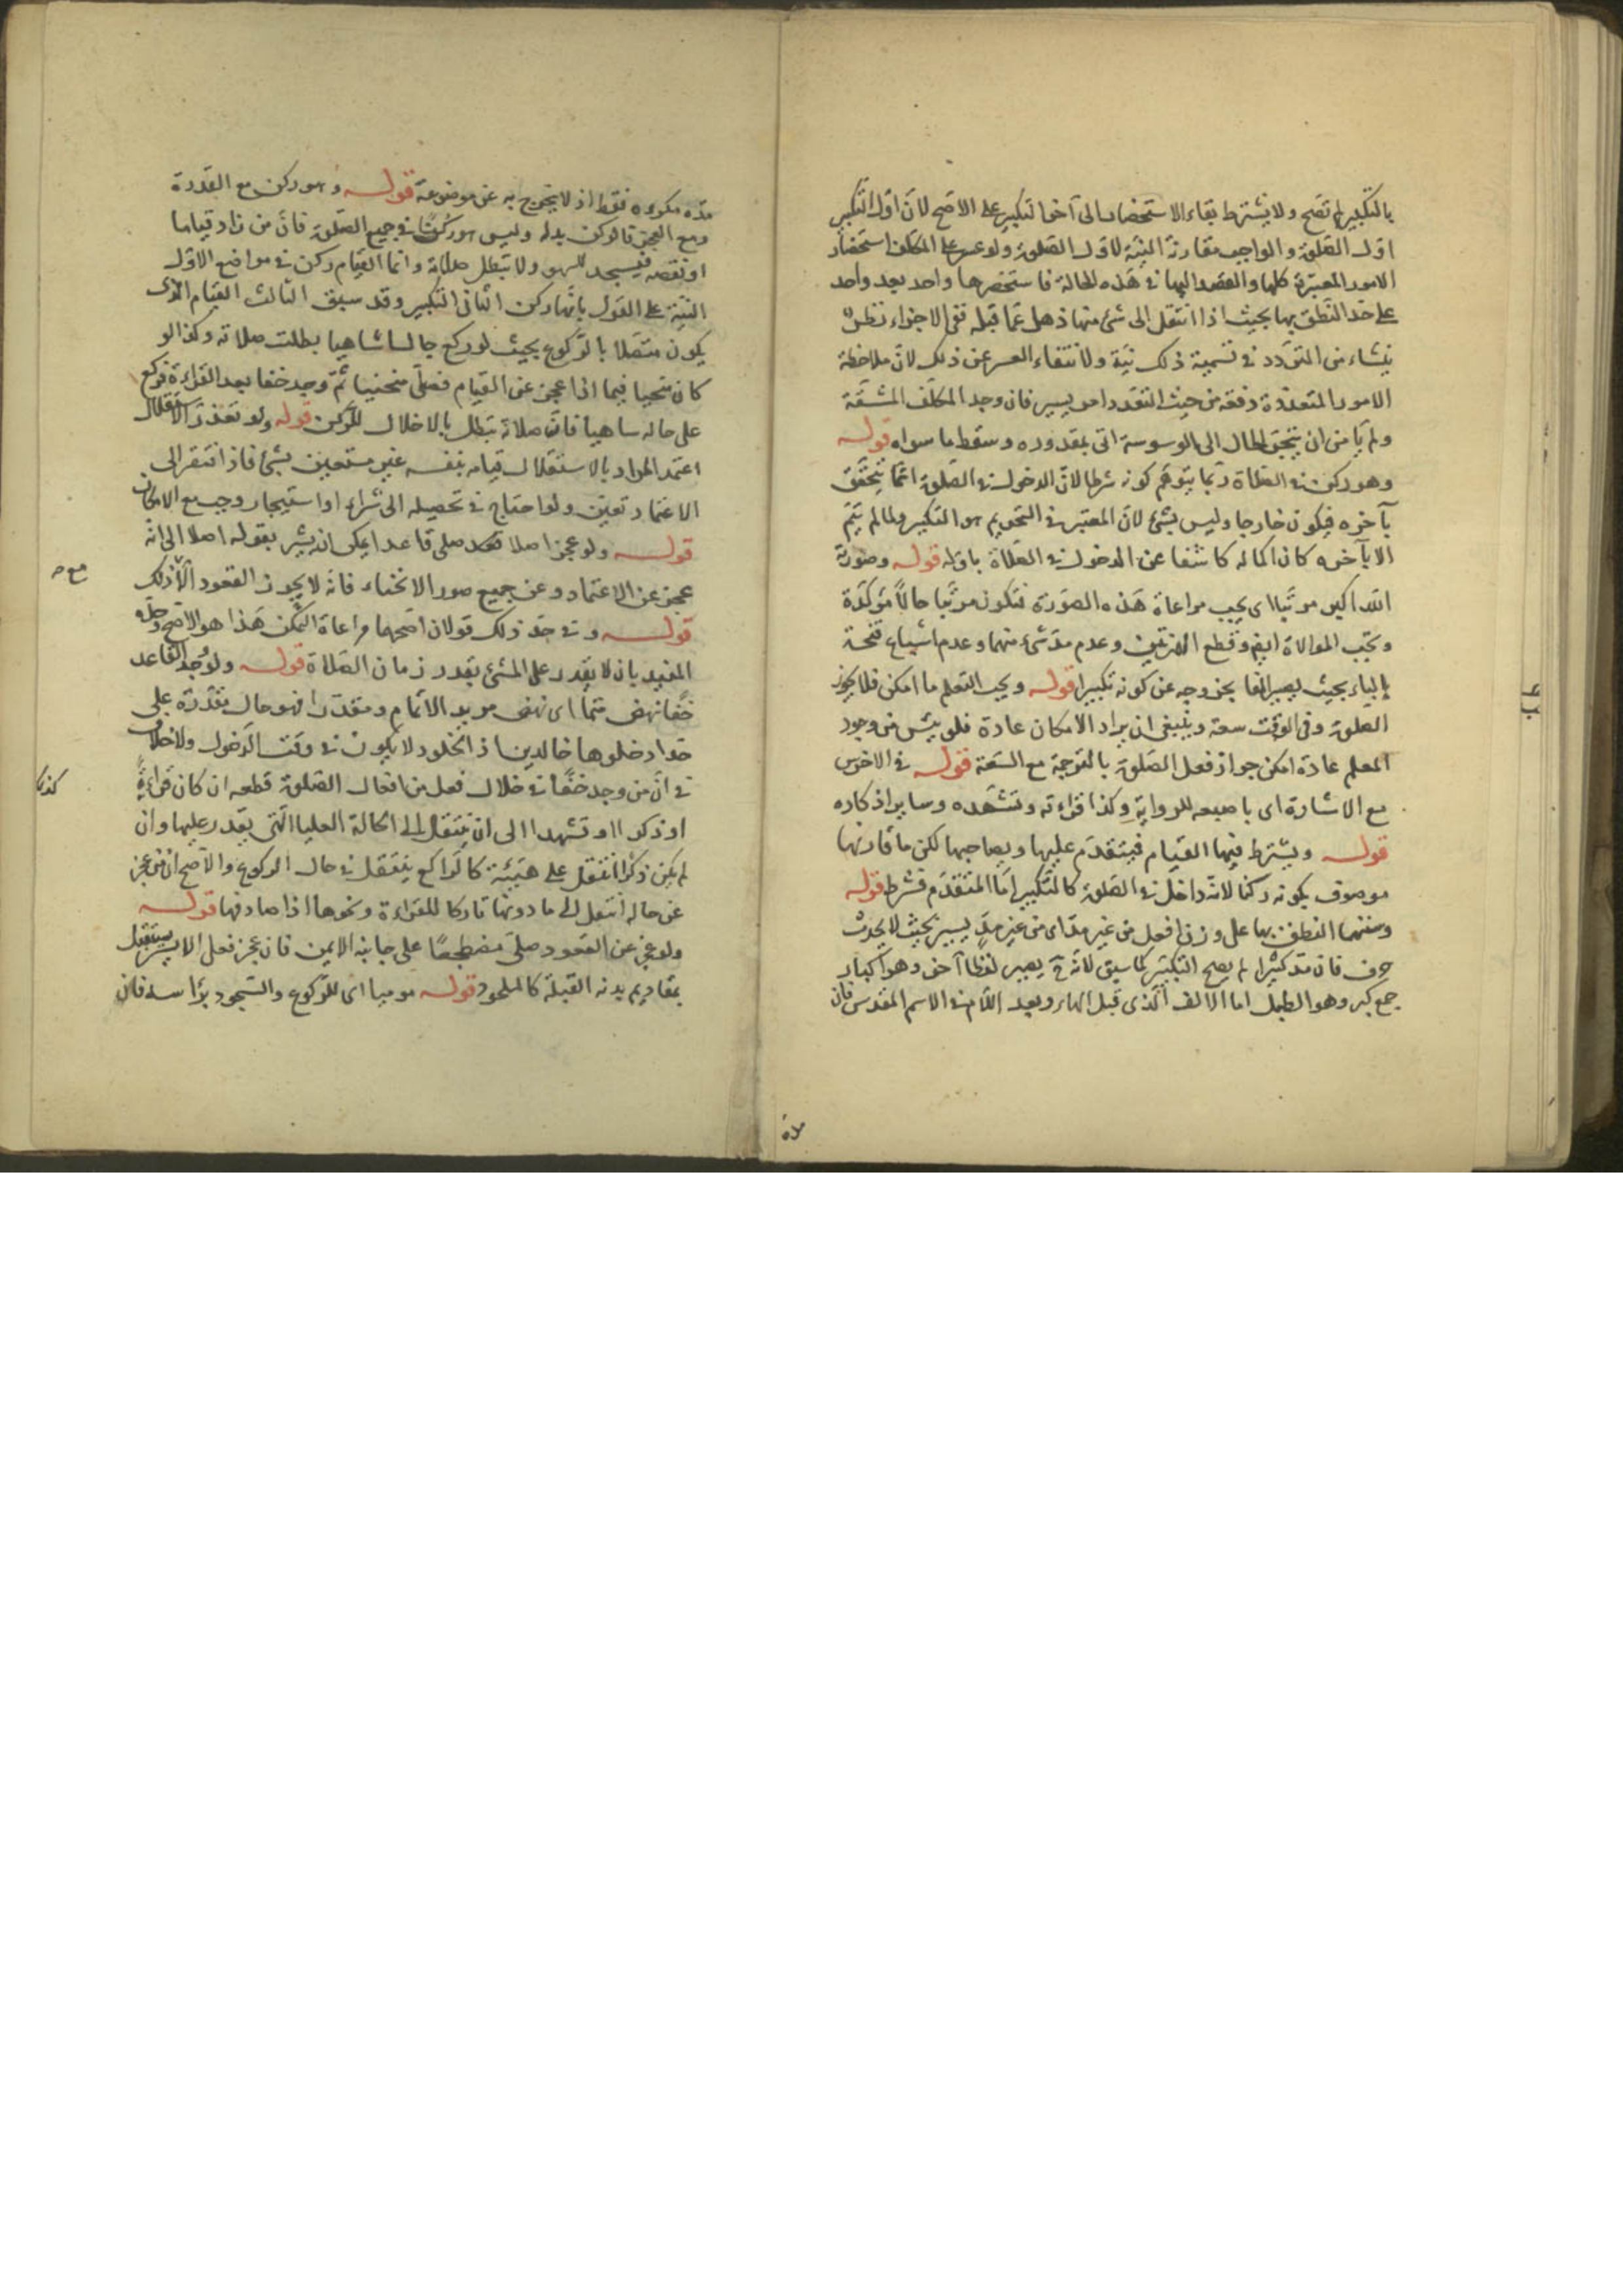 بالتكبير لم تصح ولا يشترط بقاء الاستحضار الى آخر التكبير على الاصح لان اول التكبير
اول الصلوة والواجب مقارنة النية لاول الصلوة ولو عسر على المكلف استحضار
الامور المعتبرة كلها والقصد اليها في هذه الحالة فاستحضرها واحد بعد واحد
على حد النطق بها بحيث اذا انتقل الى شئ منها ذهل عما قبله ففي الاجزاء نظر
ينشاء من التردد في تسمية ذلك نية ولانتفاء العسر عن ذلك لان ملاحظة
الامور المتعددة دفعة من حيث التعدد امر يسير فان وجد المكلف المشقة
ولم يأمن ان ينجر الحال الى الوسوسة اتى بمقدوره وسقط ما سواه قوله
وهو ركن في الصلاة ربما يتوهم كونه شرطا لان الدخول في الصلوة انما يتحقق
بآخره فيكون خارجا وليس بشئ لان المعتبر في التحريم هو التكبير ولما لم يتم
الا بآخره كان اكماله كاشفا عن الدخول في الصلاة باوله قوله وصورته
الله اكبر مرتبا اى يجب مراعاة هذه الصورة فتكون مرتبا حالا مؤكدة
وتجب الموالاة ايضا وقطع الهمزتين وعدم مد شئ منهما وعدم اشباع فتحة
الباء بحيث يصير الفا يخرجه عن كونه تكبيرا قوله ويجب التعلم ما امكن فلا يجوز
الصلوة وفي الوقت سعة وينبغي ان يراد الامكان عادة فلو يئس من وجود
المعلم عادة امكن جواز فعل الصلوة بالترجمة مع السعة قوله في الاخرس
مع الاشارة اى باصبعه للرواية وكذا قراءته وتشهده وساير اذكاره
قوله ويشترط فيها القيام فيتقدم عليها ويصاحبها لكن ما قارنها
موصوف بكونه ركنا لانه داخل في الصلوة كالتكبير اما المتقدم فشرط قوله
وسننها النطق بها على وزن افعل من غير مد اى من غير مد يسير بحيث لا يحدث
حرف فان مد كثيرا لم يصح التكبير كما سبق لانه ح يصير لفظا آخر وهو اكبار
جمع كبر وهو الطبل اما الالف الذى قبل الهاء وبعد اللام في الاسم المقدس فان
مده
مده مكروه فقط اذ لا يخرج به عن موضوعه قوله وهو ركن مع القدرة
ومع العجز فالركن بدله وليس هو ركنا في جميع الصلوة فان من زاد قياما
او نقصه فيسجد للسهو ولا تبطل صلاته وانما القيام ركن في مواضع الاول
النية على القول بانها ركن الثانى التكبير وقد سبق الثالث القيام الذى
يكون متصلا بالركوع بحيث لو ركع جالسا ساهيا بطلت صلاته وكذا لو
كان منحيا فيما اذا عجز عن القيام فصلى منحنيا ثم وجد خفا بعد القراءة فركع
على حاله ساهيا فان صلاته تبطل بالاخلال للركن قوله ولو تعذر الاستقلال
اعتمد المراد بالاستقلال قيامه بنفسه غير مستعين بشئ فاذا افتقر الى
الاعتماد تعين ولو احتاج في تحصيله الى شراء او استيجار وجب مع الامكان
قوله ولو عجز اصلا قعد صلى قاعدا يمكن انه يشير بقوله اصلا الى انه
عجز عن الاعتماد وعن جميع صور الانحناء فانه لا يجوز القعود الا لذلك
قوله وفي حد ذلك قولان اصحهما مراعاة التمكن هذا هو الاصح وحده
المفيد بان لا يقدر على المشئ بقدر زمان الصلاة قوله ولو وجد القاعد
خفا نهض متما اى نهض مريد الاتمام ومقدرا فهو حال مقدرة على
حد ادخلوها خالدين اذ الخلود لا يكون في وقت الدخول ولا خلاف
في ان من وجد خفا في خلال فعل من افعال الصلوة قطعه ان كان قراءة
او ذكرا او تشهدا الى ان ينتقل الى الحالة العليا التى يقدر عليها وان
لم يكن ذكرا انتقل على هيئته كالراكع ينتقل في حال الركوع والاصح ان من عجز
عن حاله انتقل الى ما دونها تاركا للقراءة ونحوها اذا صادفها قوله
ولو عجز عن القعود صلى مضطجعا على جانبه الايمن فان عجز فعلى الايسر يستقبل
بمقاديم بدنه القبلة كالملحود قوله موميا اى للركوع والسجود براسه فان